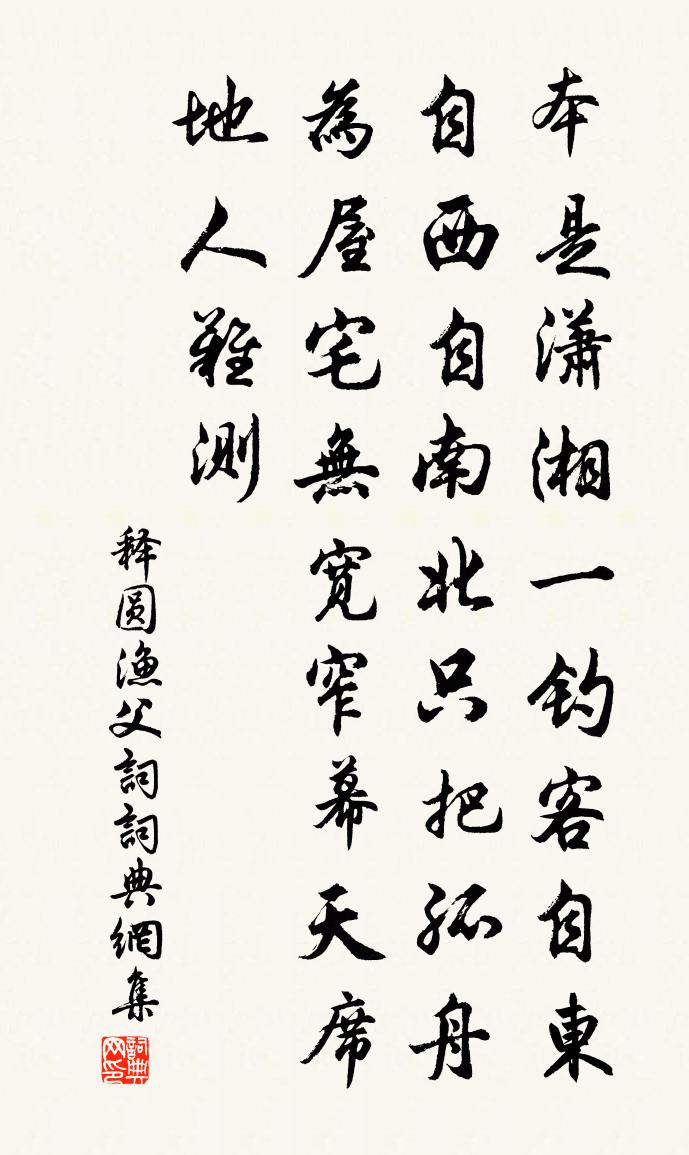 本是瀟湘一釣客自東
自西自南北只把孤舟
為屋宅無寬窄幕天席
地人難測
释圆漁父詞詞典網集
詞典网印